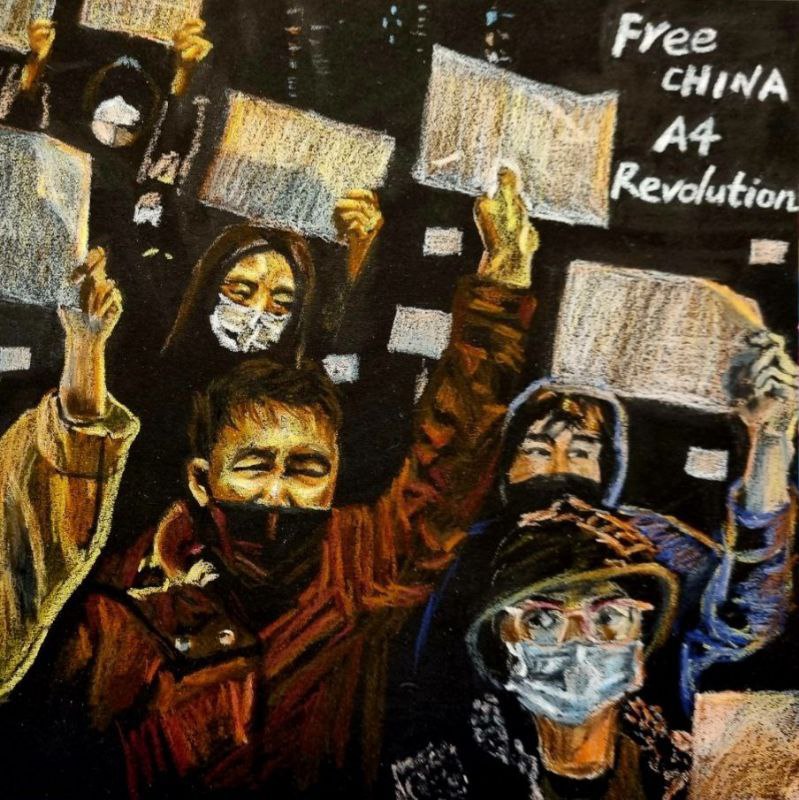 Free
CHINA
A4
Revolution